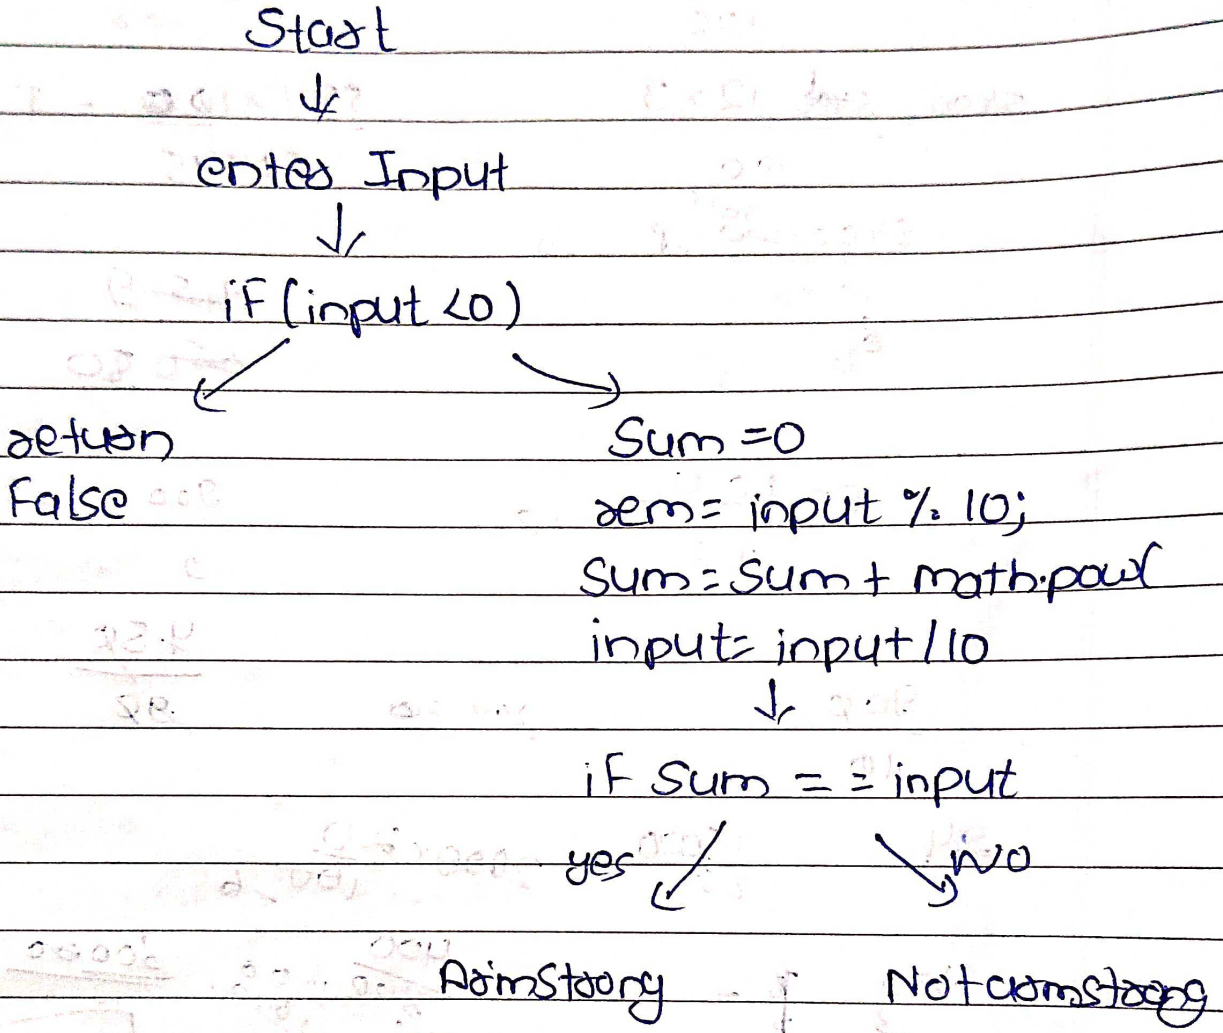 Start
enter Input
if (input <0)
return
False
Sum =0
rem= input % 10;
Sum = Sum + math.pow(
input= input / 10
if Sum = = input
yes
NO
Armstrong
Not armstrong